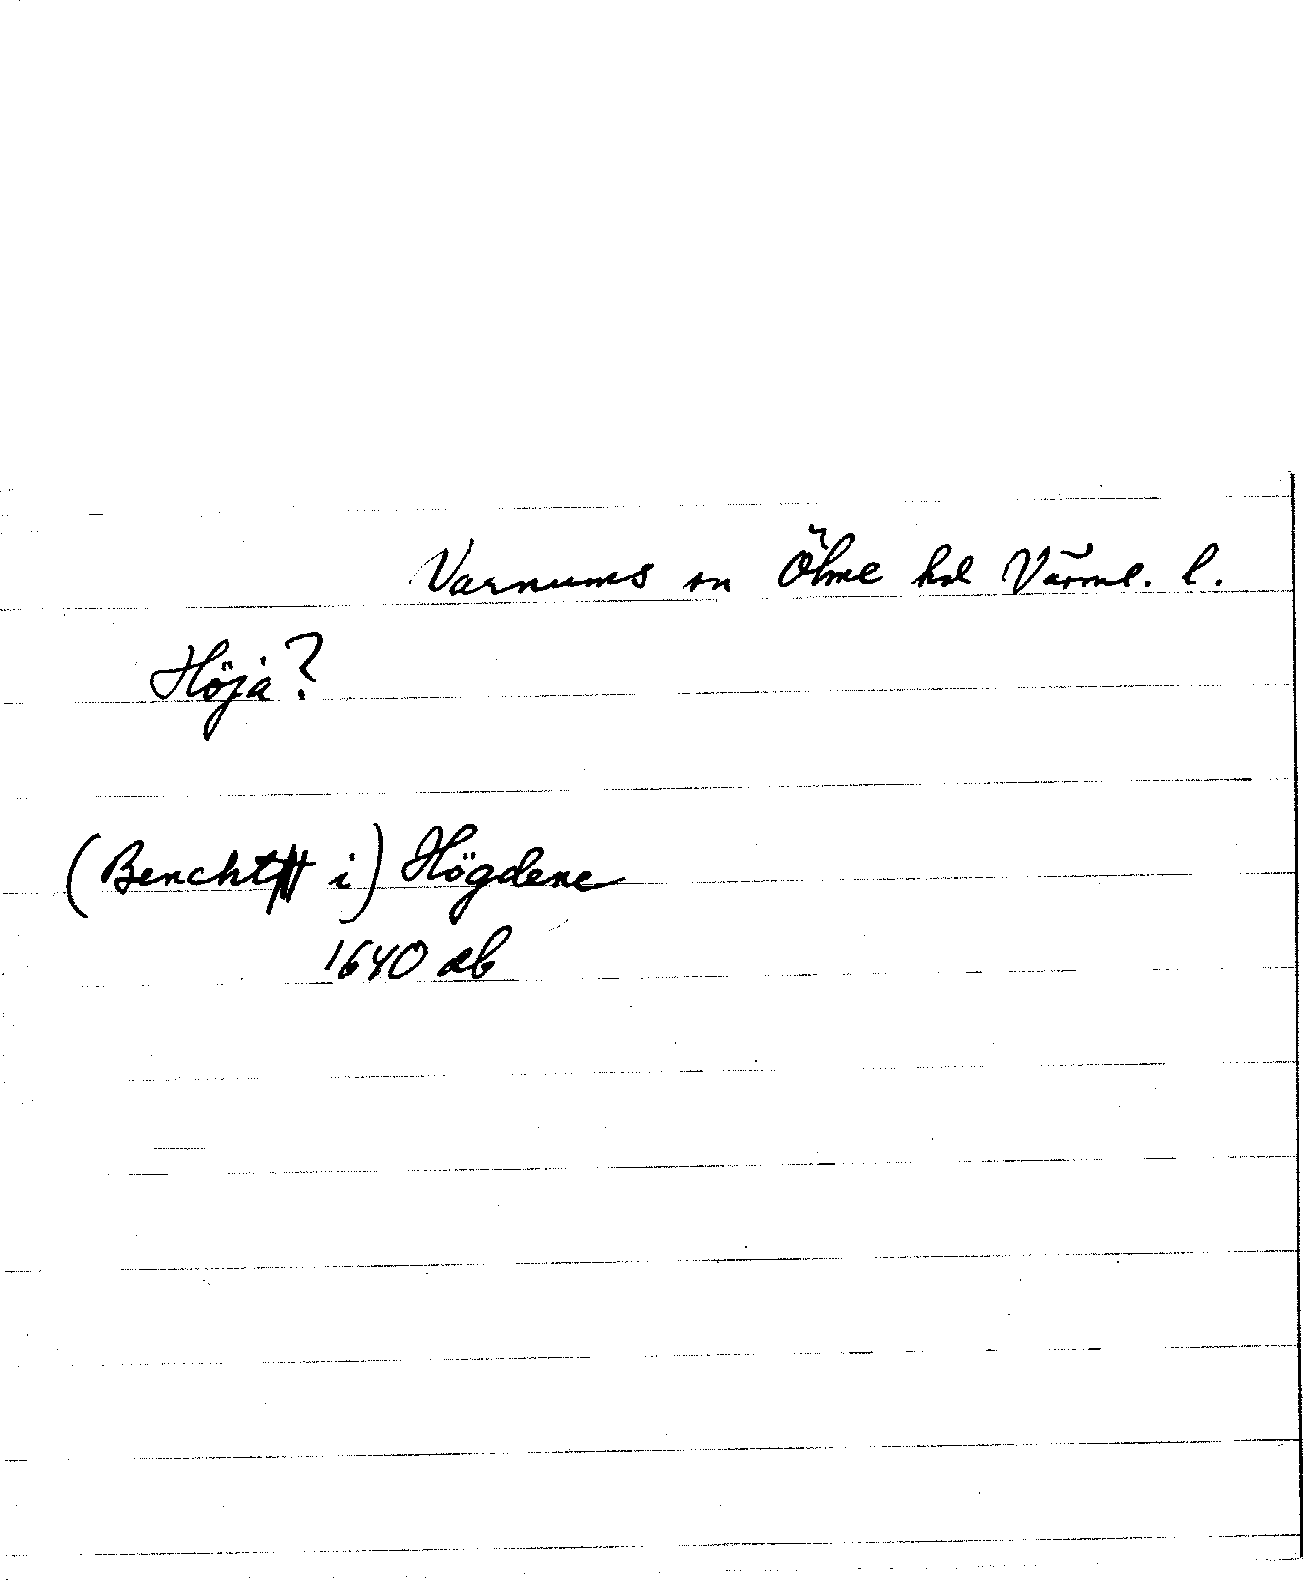 Varnums sn Ölme hd Värml. l.
Höjå?
(Bencht i) Högdene
1640 ab